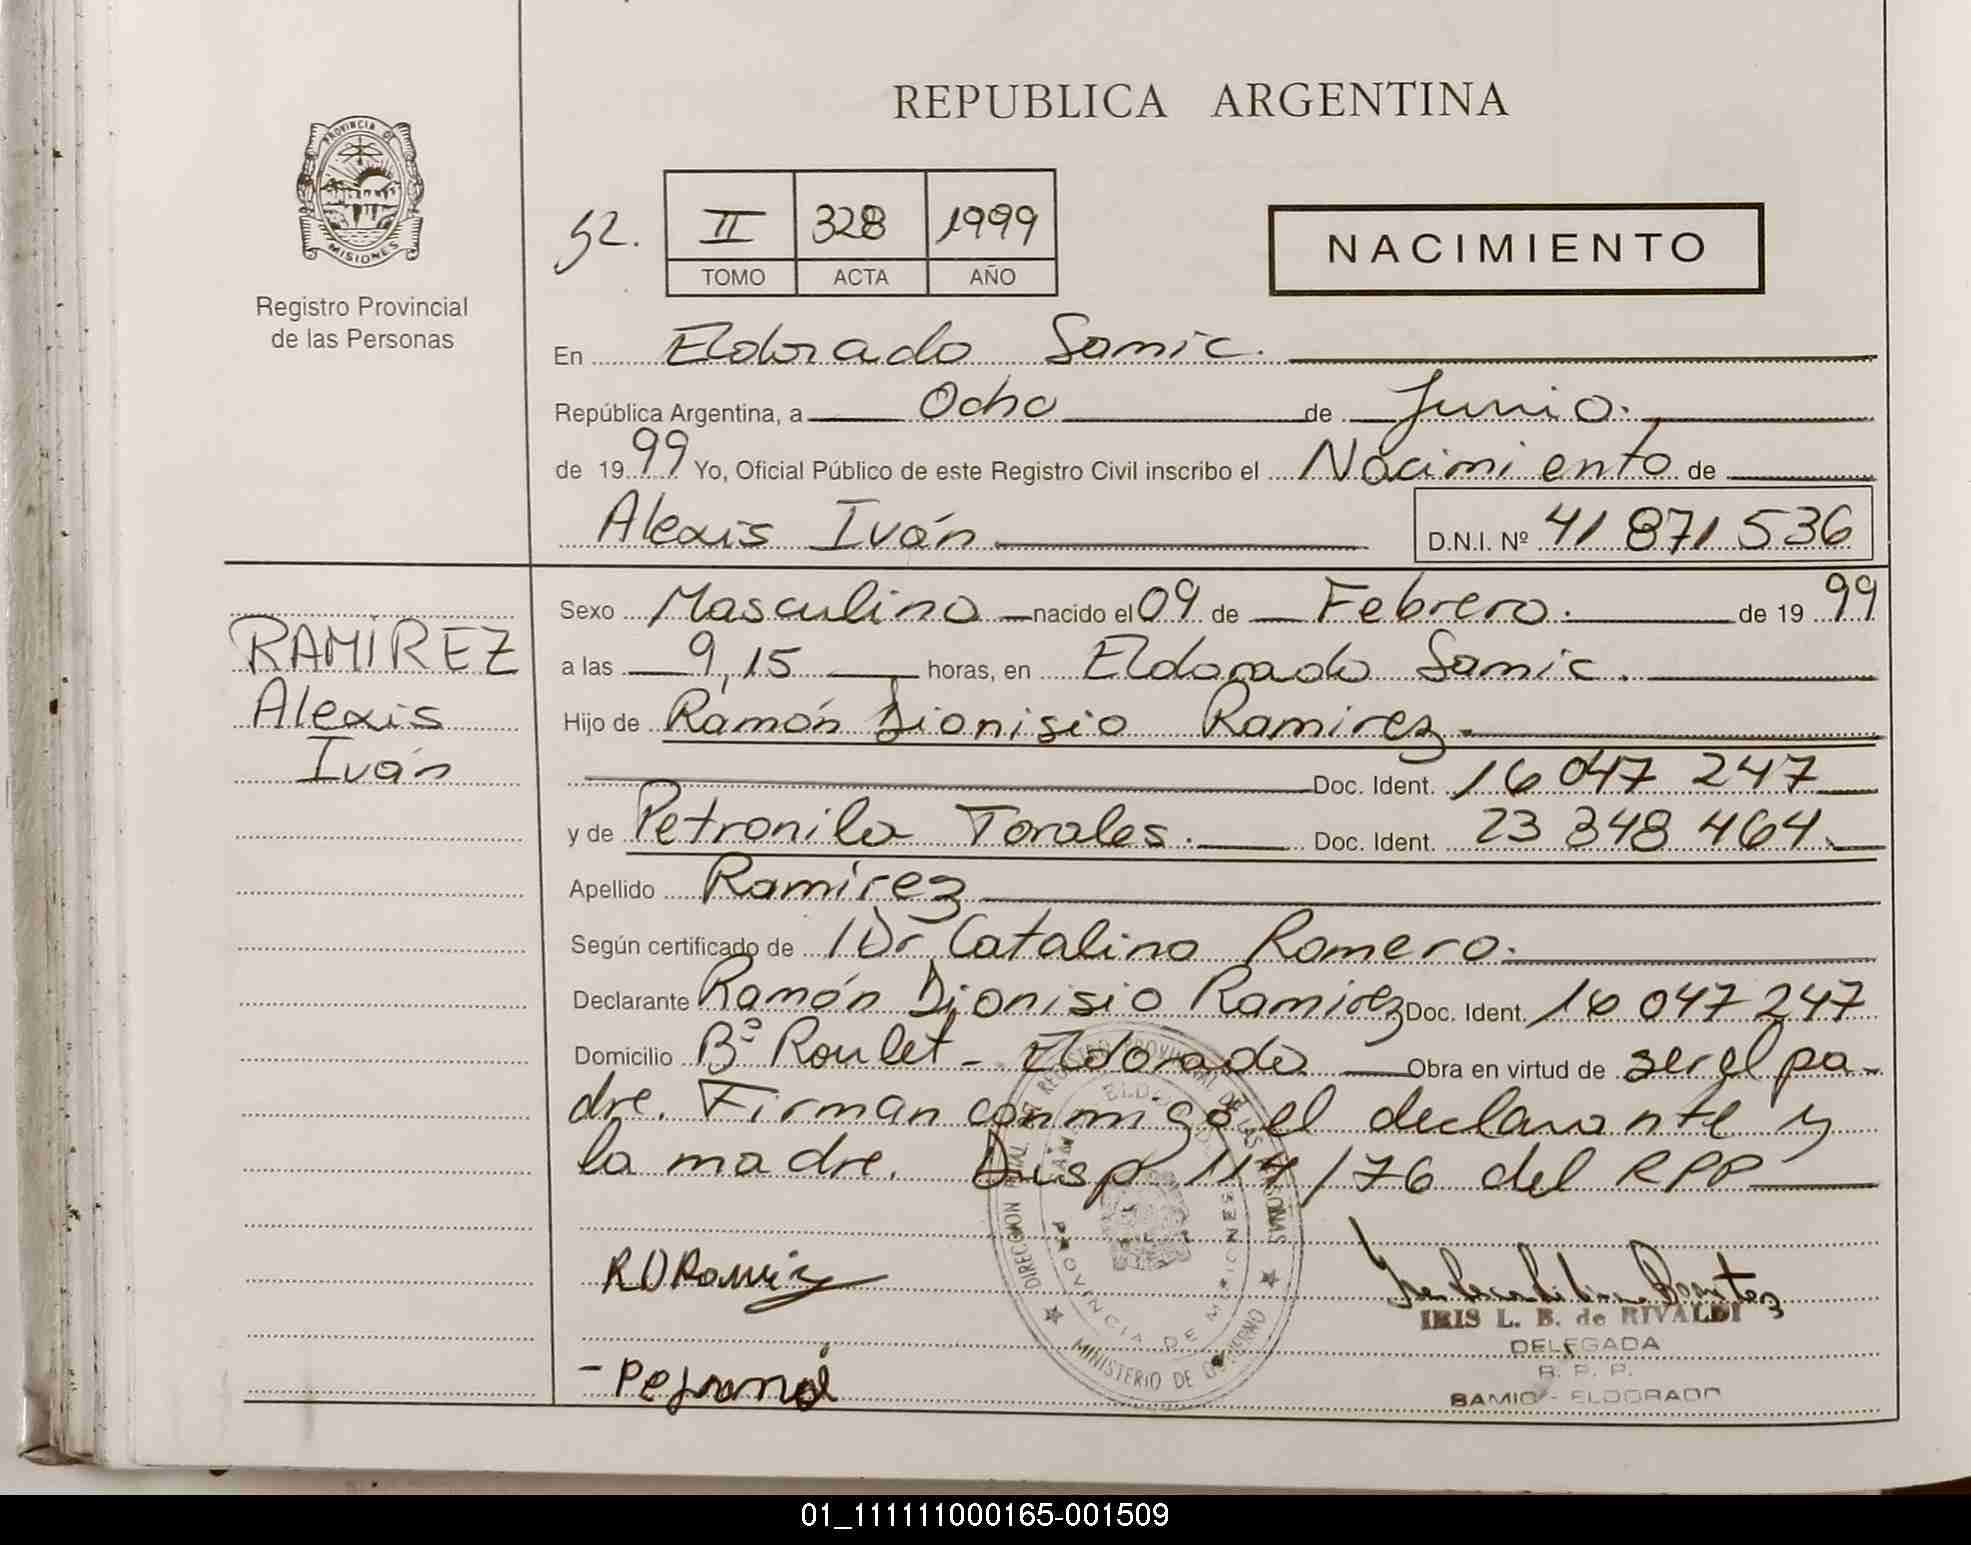 REPUBLICA ARGENTINA
PROVINCIA DE
MISIONES
Registro Provincial
de las Personas
52.
II 328 1999
TOMO ACTA AÑO
NACIMIENTO
En Eldorado Samic.
República Argentina, a Ocho de Junio.
de 1999 Yo, Oficial Público de este Registro Civil inscribo el Nacimiento de
Alexis Iván
D.N.I. Nº 41 871 536
RAMIREZ
Alexis
Iván
Sexo Masculino nacido el 09 de Febrero. de 1999
a las 9,15 horas, en Eldorado Samic.
Hijo de Ramón Dionisio Ramirez.
Doc. Ident. 16 047 247
y de Petronila Torales. Doc. Ident. 23 348 464.
Apellido Ramirez
Según certificado de Dr Catalino Romero.
Declarante Ramón Dionisio Ramirez Doc. Ident. 16 047 247
Domicilio Bº Roulet - Eldorado Obra en virtud de ser el pa-
dre. Firman conmigo el declarante y
la madre. Disp 114/76 del RPP
R D Ramirez
IRIS L. B. de RIVALDI
DELEGADA
R. P. P.
SAMIC - ELDORADO
PROVINCIA DE MISIONES
MINISTERIO DE GOBIERNO
01_111111000165-001509